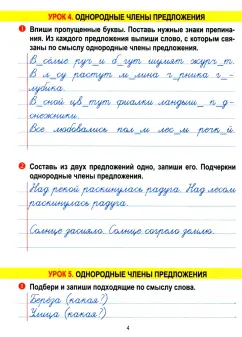 УРОК 4. ОДНОРОДНЫЕ ЧЛЕНЫ ПРЕДЛОЖЕНИЯ
1 Впиши пропущенные буквы. Поставь нужные знаки препина-
ния. Из каждого предложения выпиши слово, с которым свя-
заны по смыслу однородные члены предложения.
В_сёлые руч_и б_гут шумят журч_т.
В л_су растут м_лина ч_рника г_-
лубика.
В_сной цв_тут фиалки ландыш_ п_д-
снежники.
Все любовались пол_м лесом речк_й.
2 Составь из двух предложений одно, запиши его. Подчеркни
однородные члены предложения.
Над рекой раскинулась радуга. Над лесом
раскинулась радуга.
Солнце засияло. Солнце согрело землю.
УРОК 5. ОДНОРОДНЫЕ ЧЛЕНЫ ПРЕДЛОЖЕНИЯ
1 Подбери и запиши подходящие по смыслу слова.
Берёза (какая?)
Улица (какая?)
4